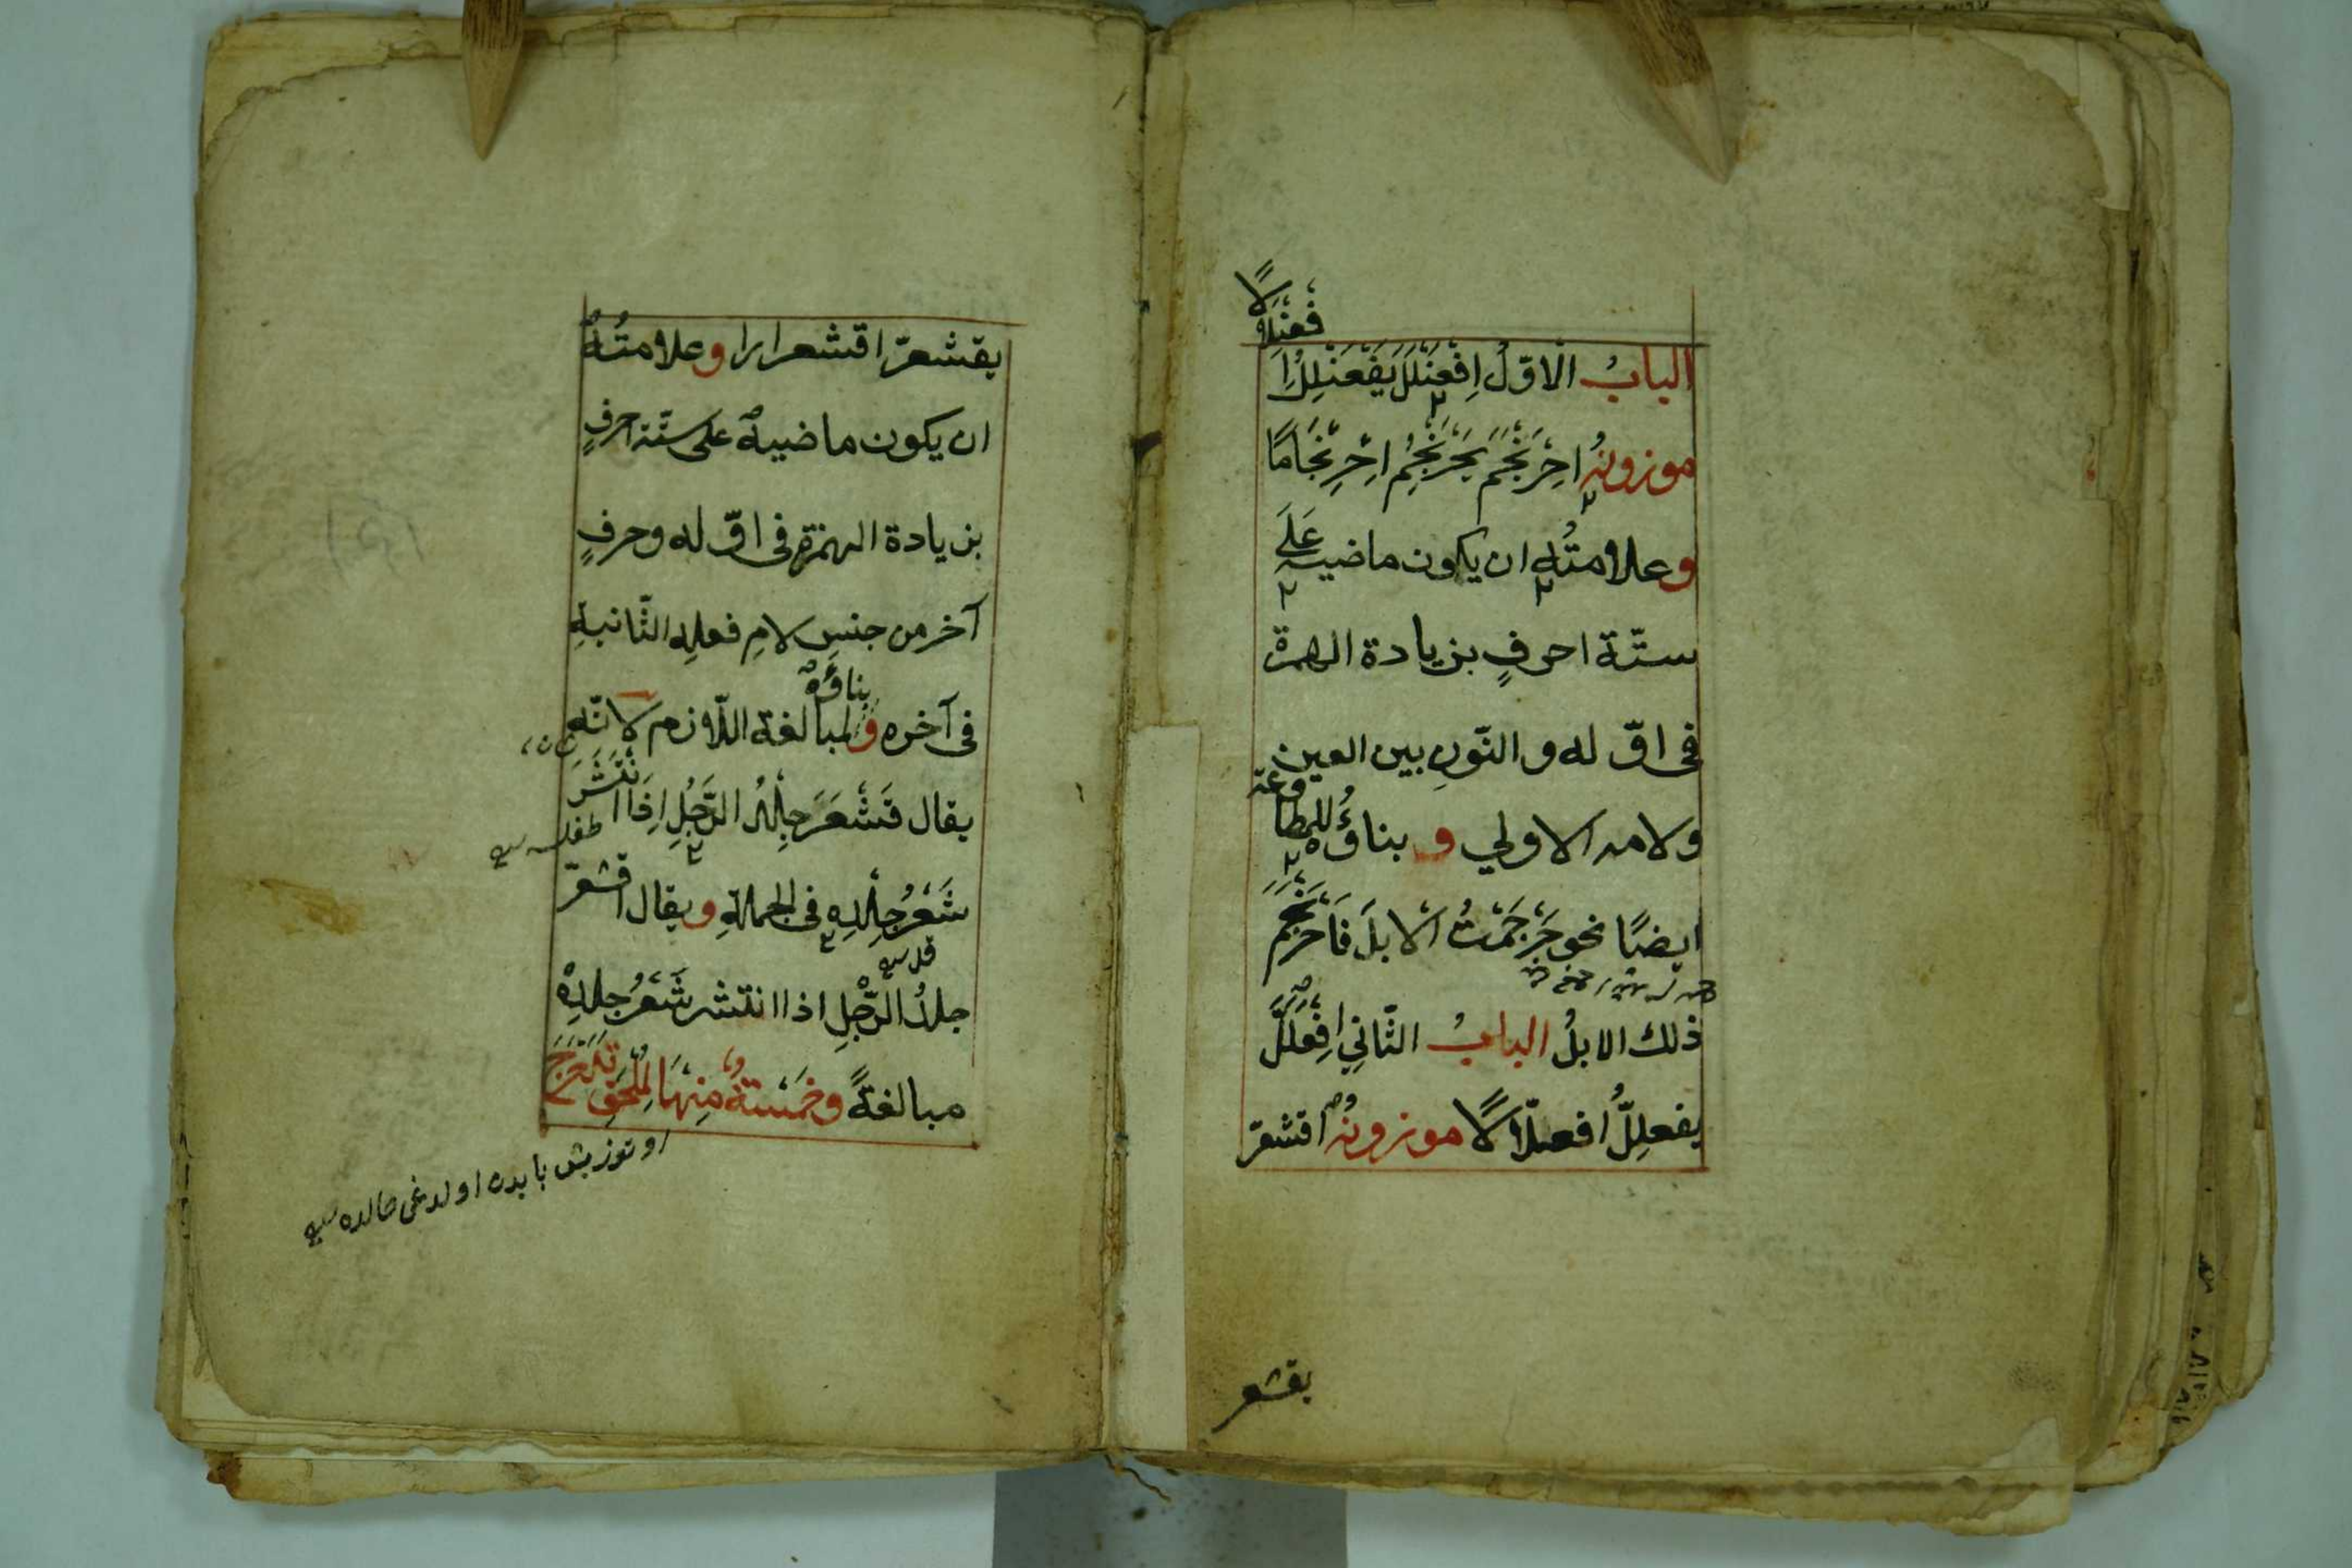 الباب الاوّل اِفْعَنْلَلَ يَفْعَنْلِلُ اِ
فْعِنْلَالًا
موزونهُ احْرَنْجَمَ يَحْرَنْجِمُ احْرِنْجَامًا
وعلامتُه ان يكون ماضيه عَلَى
ستّة احرفٍ بزيادة الهمزة
فى اوّله والنّونِ بين العين
ولامه الاولي و بناؤُه للمطاوعة
ايضًا نحو حَرْجَمْتُ الابلَ فَاحْرَنْجَمَ
ذلك الابلُ البابُ الثّاني افْعَلَلَّ
يفعلِلُّ افعلّالًا موزونهُ اقشعرّ
يقشعر
يقشعرّ اقشعرارا وعلامتُهُ
ان يكون ماضيه على ستّة احرفٍ
بزيادة الهمزة فى اوّله وحرفٍ
آخر من جنسِ لامِ فعلِه الثّانيةِ
فى آخره و بناؤه لمبالغة اللّازم لانّه
يقال قَشْعَرَ جِلْدُ الرَّجُلِ اِذَا انْتَشَرَ
شَعْرُ جِلْدِهِ فى الجملةِ ويقال اقشعرّ
جلدُ الرّجلِ اذا انتشر شَعْرُ جلدِهِ
مبالغةً وخَمْسَةٌ مِنْهَا لِمُلْحَقِ تَدَحْرَجَ